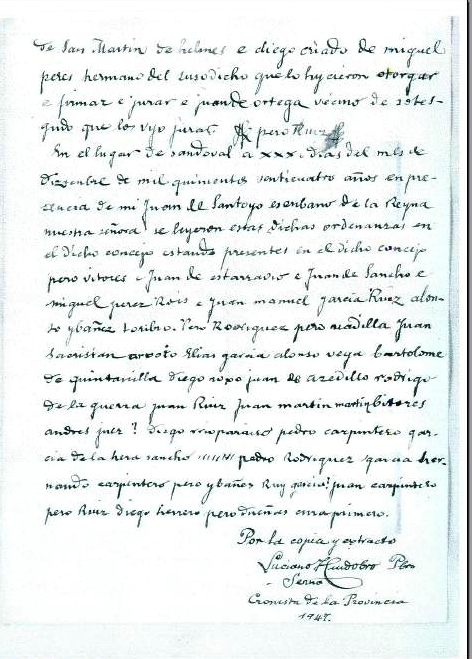 de San Martin de helines e diego criado de miguel
peres hermano del susodicho que lo hycieron otorgar
e firmar e jurar e juan de ortega vecino de
que los vyo jurar. pero Ruiz
En el lugar de sandoval a XXX dias del mes de
Diziembre de mil quinientos años en pre-
sencia de mi Juan de Santoyo escribano de la Reyna
nuestra señora se leyeron estas dichas ordenanzas en
el dicho concejo estando presentes en el dicho concejo
pero vitores e Juan de estarradio e Juan de Sancho e
miguel perez Rois e Juan manuel garcia Ruiz alon-
so ybañez toribio. Pero Rodriguez pero madilla Juan
Sacristan Elias garcia alonso vega bartolome
de quintanilla diego ropo juan de azedillo rodrigo
de la guerra juan Ruiz Juan martin martin bitores
andres juez? diego pedro carpintero gar-
cia de la hera sancho pedro Rodriguez garcia her-
nando carpintero pero ybañez Ruy garcia? juan carpintero
pero Ruiz diego herrero pero dueñas cura primero.
Por la copia y extracto
Luciano Huidobro Pbro
Serna
Cronista de la Provincia
1947.